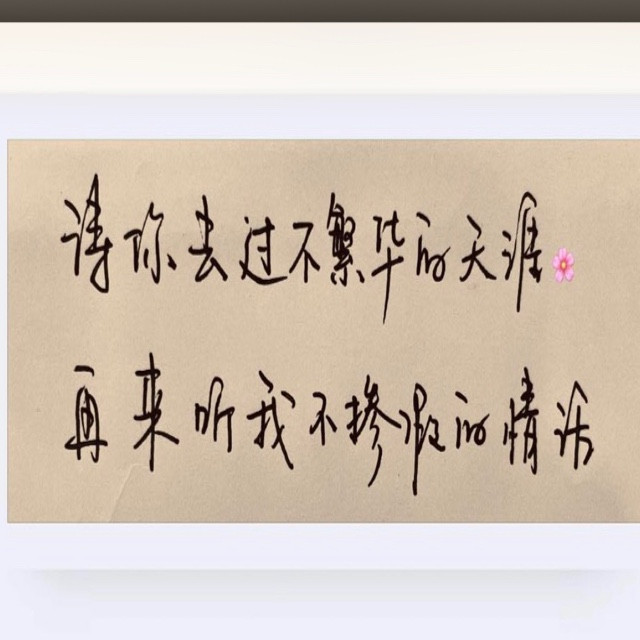 请你去过不繁华的天涯🌸
再来听我不掺假的情话